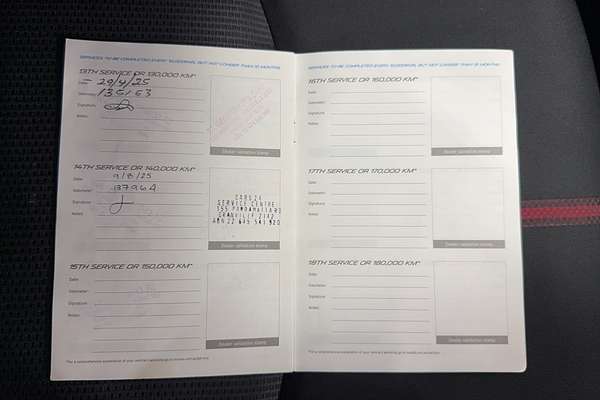 SERVICES TO BE COMPLETED EVERY 10,000KM, BUT NOT LONGER THAN 12 MONTHS
13TH SERVICE OR 130,000 KM*
Date: 29/4/25
Odometer: 135153
Signature:
Notes:
Dealer validation stamp
14TH SERVICE OR 140,000 KM*
Date: 9/8/25
Odometer: 137964
Signature:
Notes:
CARS24
SERVICE CENTRE
GRANVILLE 2142
Dealer validation stamp
15TH SERVICE OR 150,000 KM*
Date:
Odometer:
Signature:
Notes:
Dealer validation stamp
SERVICES TO BE COMPLETED EVERY 10,000KM, BUT NOT LONGER THAN 12 MONTHS
16TH SERVICE OR 160,000 KM*
Date:
Odometer:
Signature:
Notes:
Dealer validation stamp
17TH SERVICE OR 170,000 KM*
Date:
Odometer:
Signature:
Notes:
Dealer validation stamp
18TH SERVICE OR 180,000 KM*
Date:
Odometer:
Signature:
Notes:
Dealer validation stamp